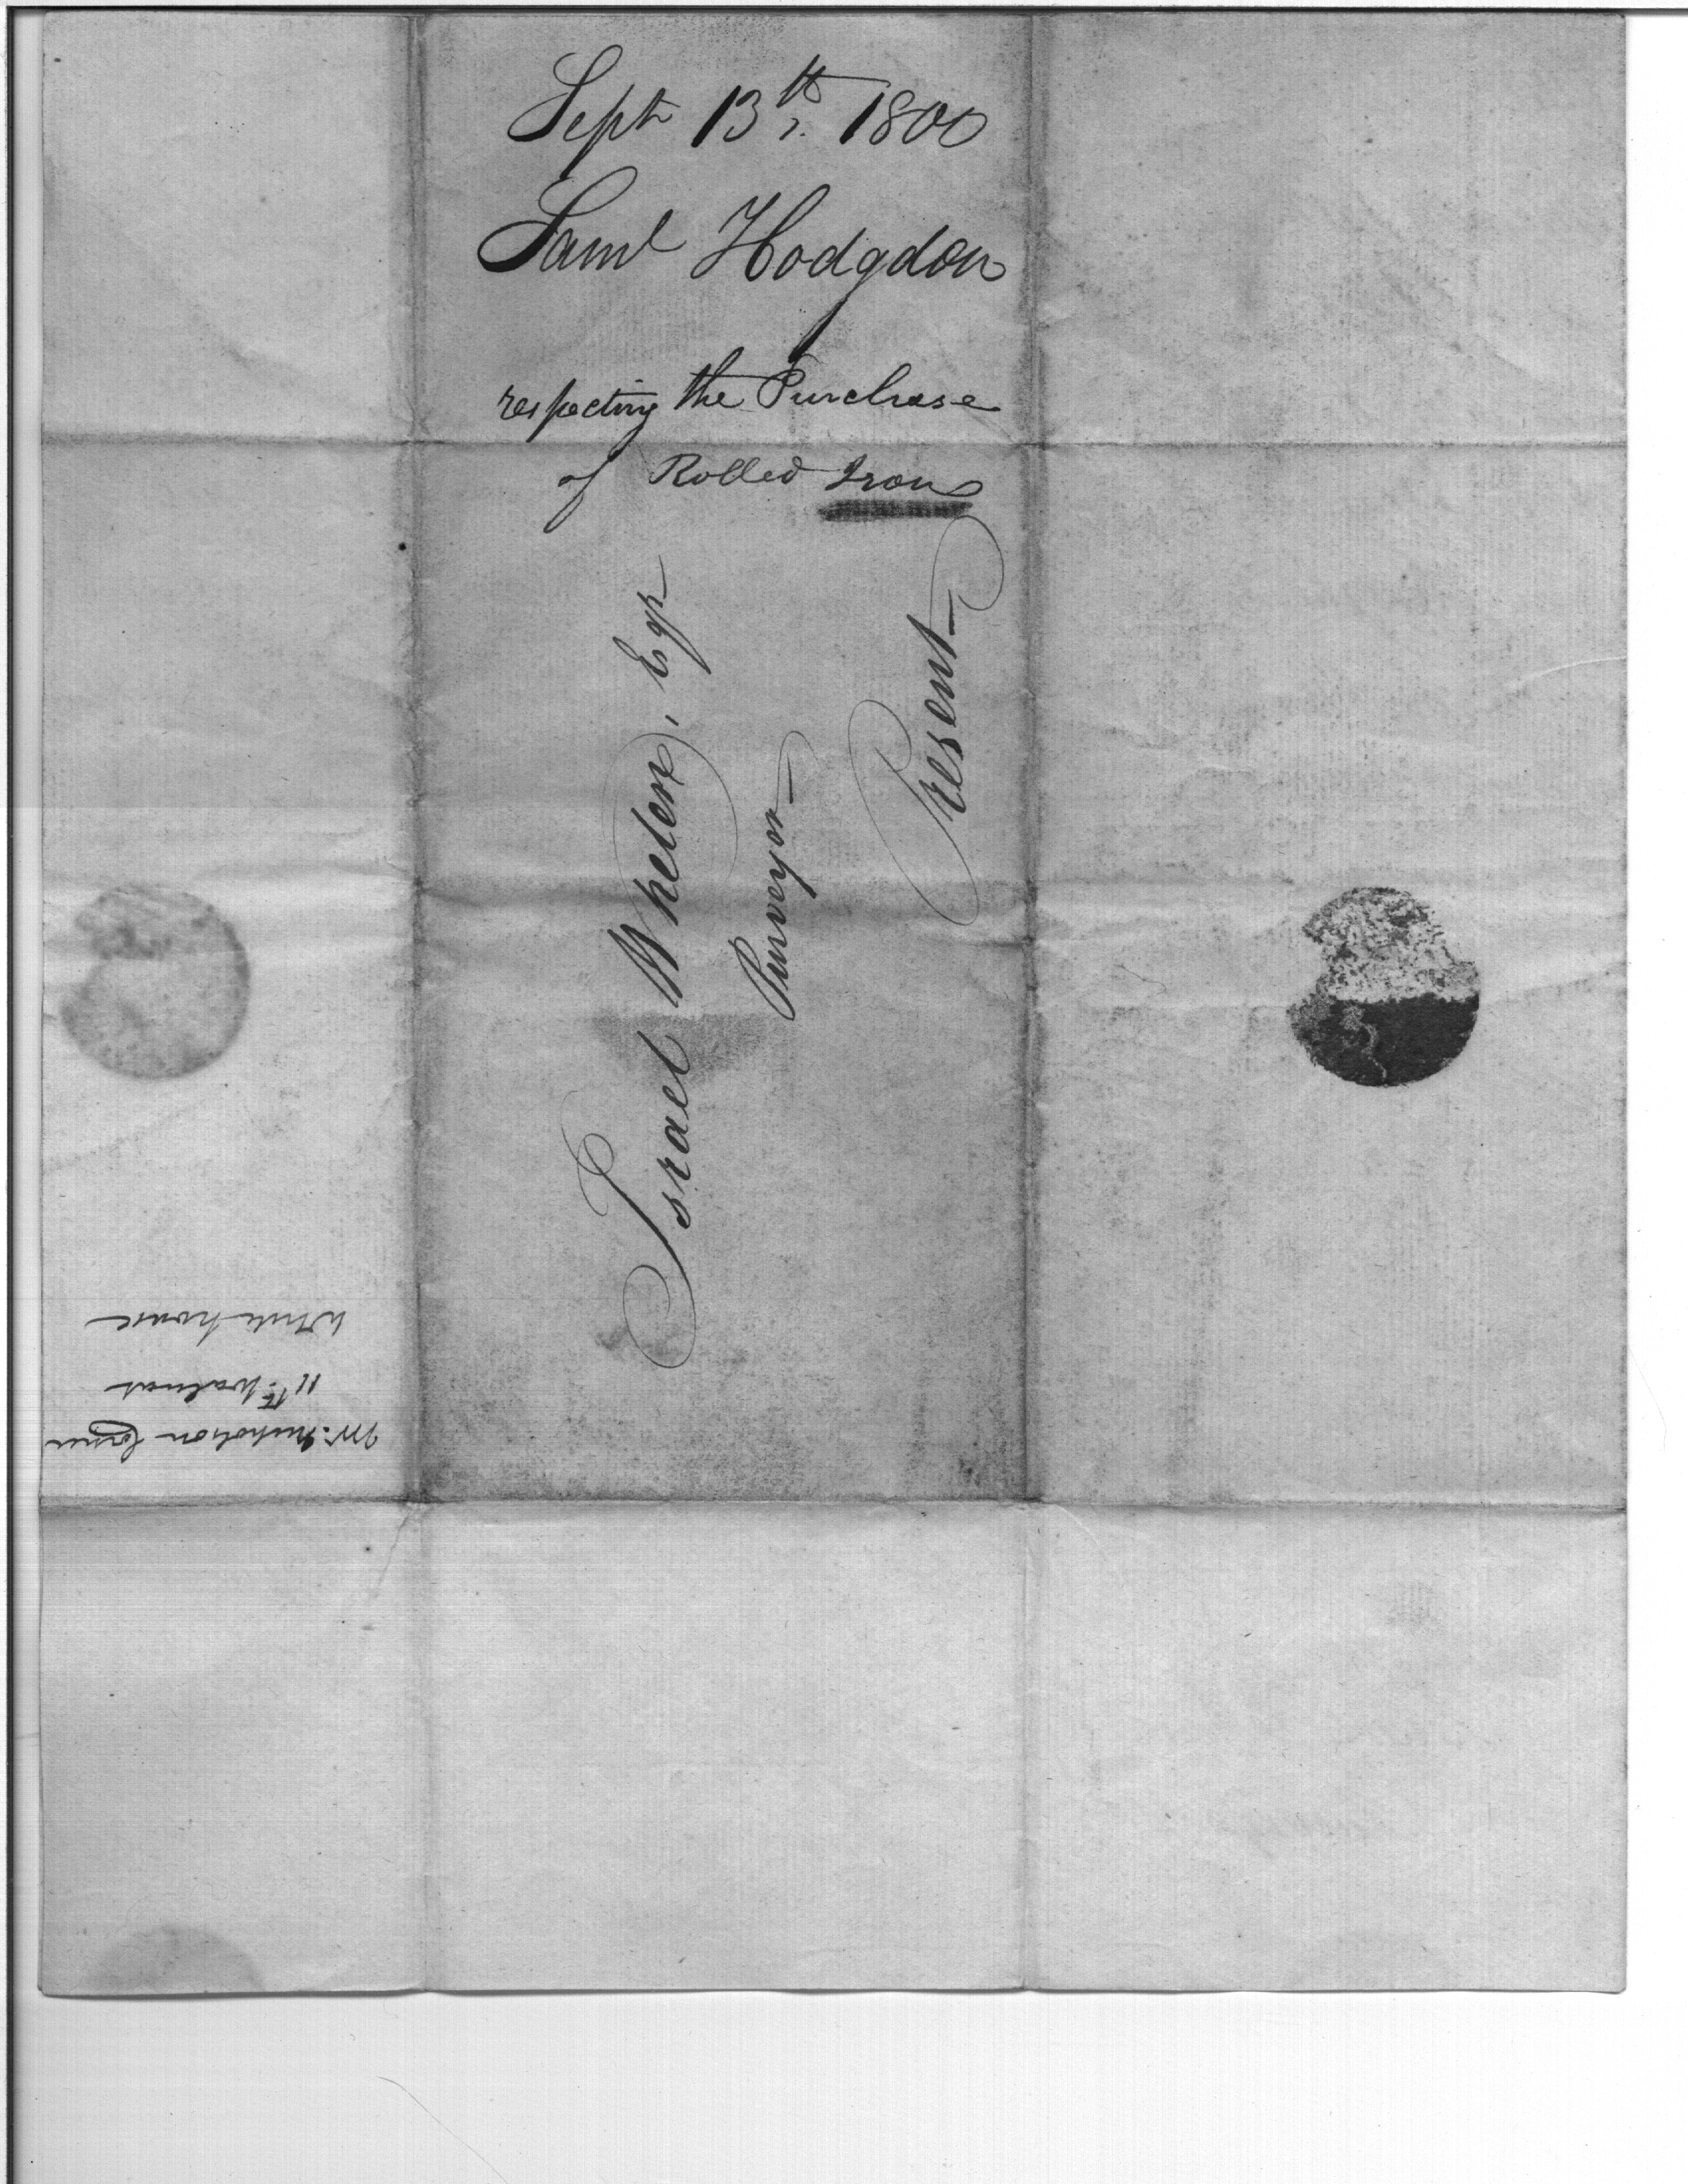 Sept 13th 1800
Saml Hodgdon
respecting the Purchase
of Rolled Iron
Israel Whelen, Esqr
Purveyor
Present
Mr. Nicholson Corner
11th Walnut
White house